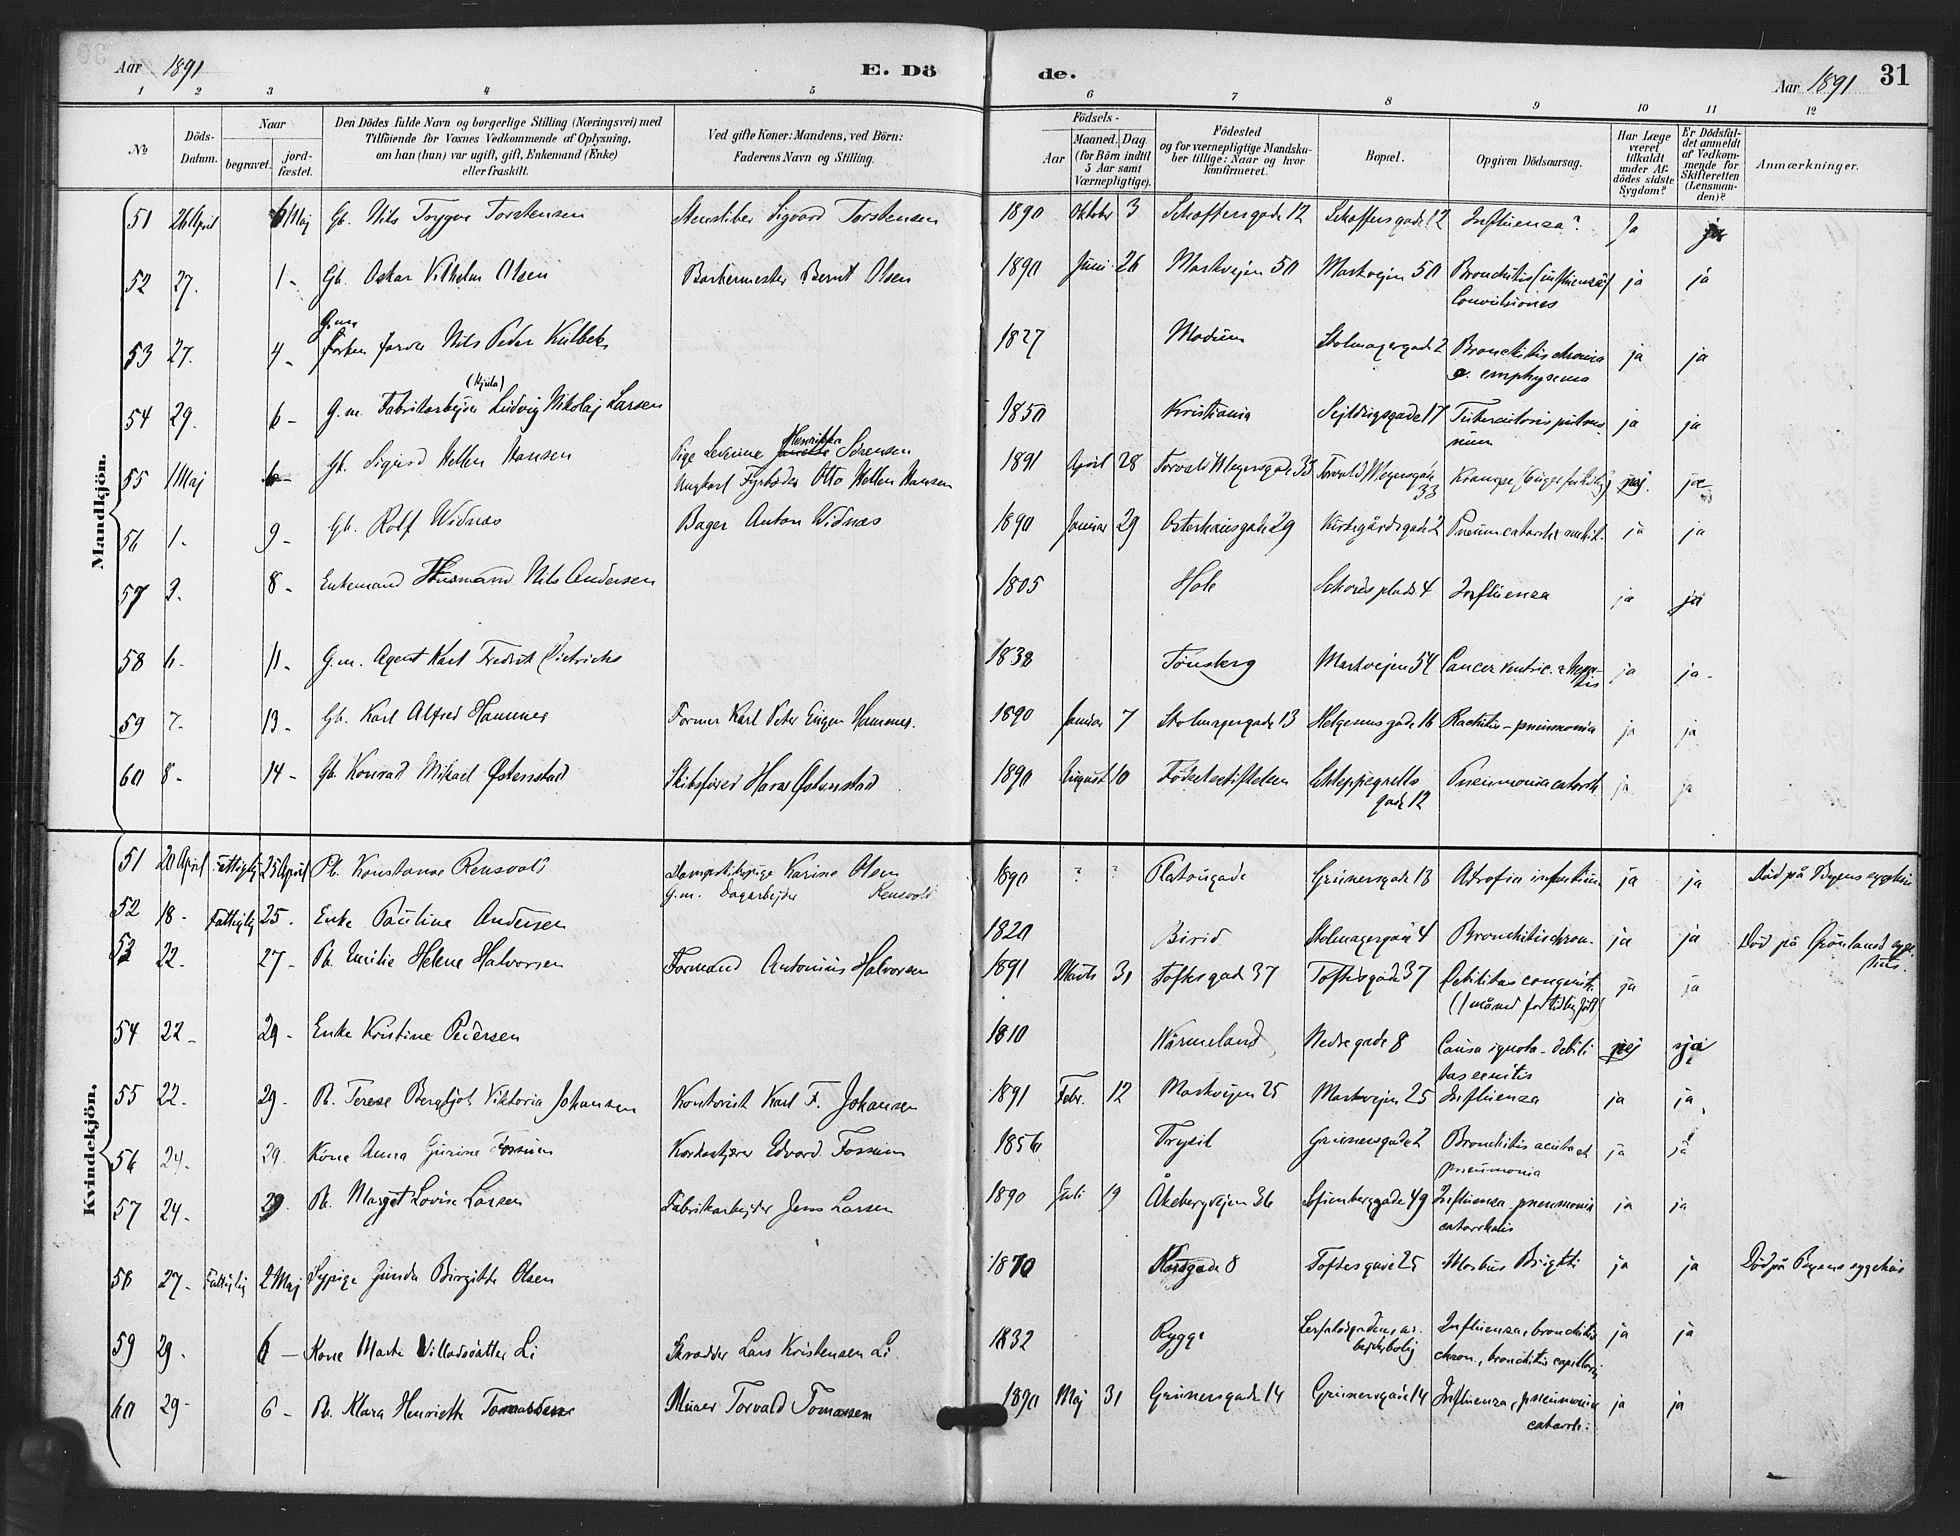 Aar 1891 E. Dö de. Aar 1891 31
1 2 3 4 5 6 7 8 9 10 11 12
№ Döds-Datum. Naar begravet. jord-fæstet. Den Dödes fulde Navn og borgerlige Stilling (Næringsvei) med Tilföiende for Voxnes Vedkommende af Oplysning, om han (hun) var ugift, gift, Enkemand (Enke) eller fraskilt. Ved gifte Koner: Mandens, ved Börn: Faderens Navn og Stilling. Födsels- Aar Maaned. Dag. (for Börn indtil 5 Aar samt Værnepligtige). Födested og for værnepligtige Mandskaber tillige: Naar og hvor konfirmeret. Bopæl. Opgiven Dödsaarsag. Har Læge været tilkaldt under Afdödes sidste Sygdom? Er Dödsfaldet anmeldt af Vedkommende for Skifteretten (Lensmanden)? Anmærkninger.
Mandkjön.
51 26 April 6 Maj Gb. Nils Trygve Torstensen Stenhiber Sigvard Torstensen 1890 Oktober 3 Schaffersgade 12 Schaffersgade 12 Influenza? Ja ja
52 27. 1 - Gb. Oskar Vilhelm Olsen Barkermester Bernt Olsen 1890 Juni 26 Markvejen 50 Markvejen 50 Bronchitis (influenza) Convulsiones ja ja
53 27. 4 - G.m. Nils Peder 1827 Modum Stolmagergade 2 Bronchitis chronica o. emphysema ja ja
54 29. 6 - G.m. Fabrikarbejder Ludvig Nikolaj Larsen 1850 Kristiania Sejldugsgade 17 Tuberculosis pulmonum ja ja
55 1 Maj 6 - Gb. Sigurd Hansen Pige Severine Henrikka Sörensen Ungkarl Fyrböder Otto Hansen 1891 April 28 Torvald Meyersgade 33 Torvald Meyersgade 33 Krampe nej ja
56 1. 9 - Gb. Rolf Widnæs Bager Anton Widnæs 1890 Januar 29 Osterhausgade 29 Kirkegårdsgade 2 Pneum. catarrh. ja ja
57 3. 8 - Enkemand Husmand Nils Andersen 1805 Hole Schous plads 4 Influenza ja ja
58 6. 11 - G.m. Agent Karl Fredrik Dietrichs 1838 Tönsberg Markvejen 54 Cancer ventric. & hepatis ja ja -
59 7. 13 - Gb. Karl Alfred Hammer Former Karl Peter Eugen Hammer. 1890 Januar 7 Stolmagergade 13 Helgesens gade 16 Rachitis - pneumonia ja ja
60 8 - 14 - Gb. Konrad Mikael Østenstad Skibsfører Hans Østenstad 1890 August 10 Födselsstiftelsen Schleppegrells gade 12 Pneumonia catarrh. ja ja
Kvindekjön.
51 20 April Fattiglig 25 April Pb. Konstanse Rensvold Dampskibspige Karine Olsen G.m. Dagarbejder Rensvold 1890 ? ? Platousgade Grünersgade 13 Atrofia infantum ja ja Död på Byens sygehus
52 18 - Fattiglig 25. Enke Pauline Andersen 1820 Birid Stolmagergade 4 Bronchitis chron. ja ja Död på Grönlands sygehus.
53 22 - 27 - Pb. Helene Halvorsen Formand Antonius Halvorsen 1891 Marts 31 Toftesgade 37 Toftesgade 37 Debilitas congenita (1 måned for tidlig född) ja ja
54 22 - 29 - Enke Kristine Pedersen 1810 Wärmeland Nedregade 8 Causa ignota - debilitas senilis nej ja
55 22. 29 - Pb. Terese Bergljot Viktoria Johansen Kontorist Karl F. Johansen 1891 Febr. 12 Markvejen 25 Markvejen 25 Influenza ja ja
56 24. 29. Kone Anna Gurine Fossum Korkeskjærer Edvard Fossum 1856 Trysil Grünersgade 2 Bronchitis acuta et pneumonia ja ja
57 24. 29. Pb. Margot Lovise Larsen Fabrikarbejder Jens Larsen 1890 Juli 19 Åkebergvejen 36 Sofienberggade 49 Influenza - pneumonia catarrhalis ja ja
58 27 - Fattiglig 2 Maj Sypige Gunda Birgitte Olsen 1870 8 Toftesgade 25 Morbus Brightii ja ja Död på Byens sygehus
59 29. 6 - Kone Marte Villadsdatter Li Skrædder Lars Kristensen Li. 1832 Rygge Influenza, bronchitis chron., bronchitis capillaris ja ja
60 29 - 6 - Pb. Klara Henriette Tomassen Murer Torvald Tomassen 1890 Maj 31 Grünersgade 14 Grünersgade 14 Influenza, pneumonia catarrh. ja ja